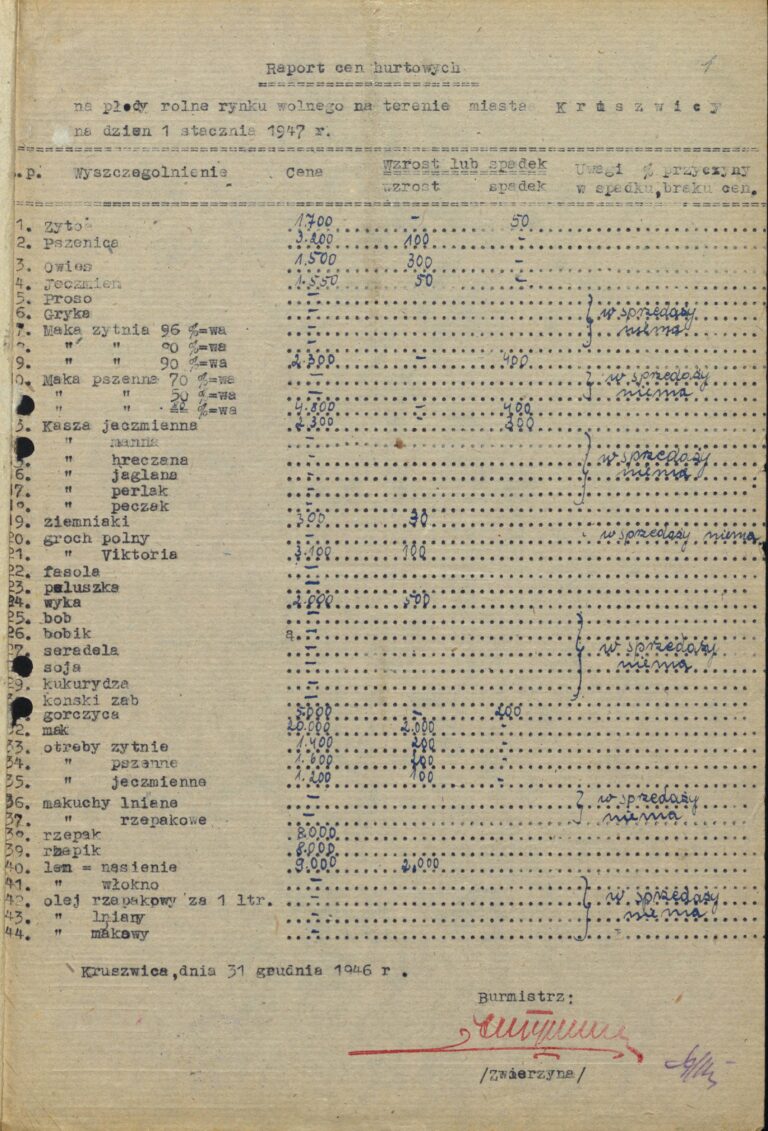 1
Raport cen hurtowych
na płody rolne rynku wolnego na terenie miasta Kruszwicy
na dzien 1 stacznia 1947 r.
.p. Wyszczegolnienie Cena Wzrost lub spadek Uwagi % przyczyny
wzrost spadek w spadku, braku cen.
1. Zyto 1.700 - 50
2. Pszenica 3.200 100 -
3. Owies 1.500 300 -
4. Jeczmien 1.550 50 -
5. Proso -
6. Gryka - w sprzedaży
7. Maka zytnia 96 %=wa - niema
" " 80 %=wa -
9. " " 90 %=wa 2.300 - 400
0. Maka pszenna 70 %=wa - w sprzedaży
" " 50 %=wa - niema
" " %=wa 4.800 - 400
3. Kasza jeczmienna 2.300 200
" manna -
5. " hreczana - w sprzedaży
6. " jaglana - niema
17. " perlak -
" peczak -
19. ziemniaki 300 30
20. groch polny - w sprzedaży niema
21. " Viktoria 3.100 100
22. fasola -
23. peluszka -
24. wyka 2.000 500
25. bob -
26. bobik a -
27. seradela - w sprzedaży
soja - niema
29. kukurydza -
konski zab -
gorczyca 5.000 - 200
32. mak 20.000 2.000 -
33. otreby zytnie 1.400 200 -
34. " pszenne 1.600 200 -
35. " jeczmienne 1.200 100 -
36. makuchy lniane - w sprzedaży
37. " rzepakowe - niema
38. rzepak 8.000
39. rzepik 8.000
40. len = nasienie 9.000 2.000
41. " włokno -
42. olej rzepakowy za 1 ltr. - w sprzedaży
43. " lniany - niema
44. " makowy -
Kruszwica, dnia 31 grudnia 1946 r.
Burmistrz:
/Zwierzyna/